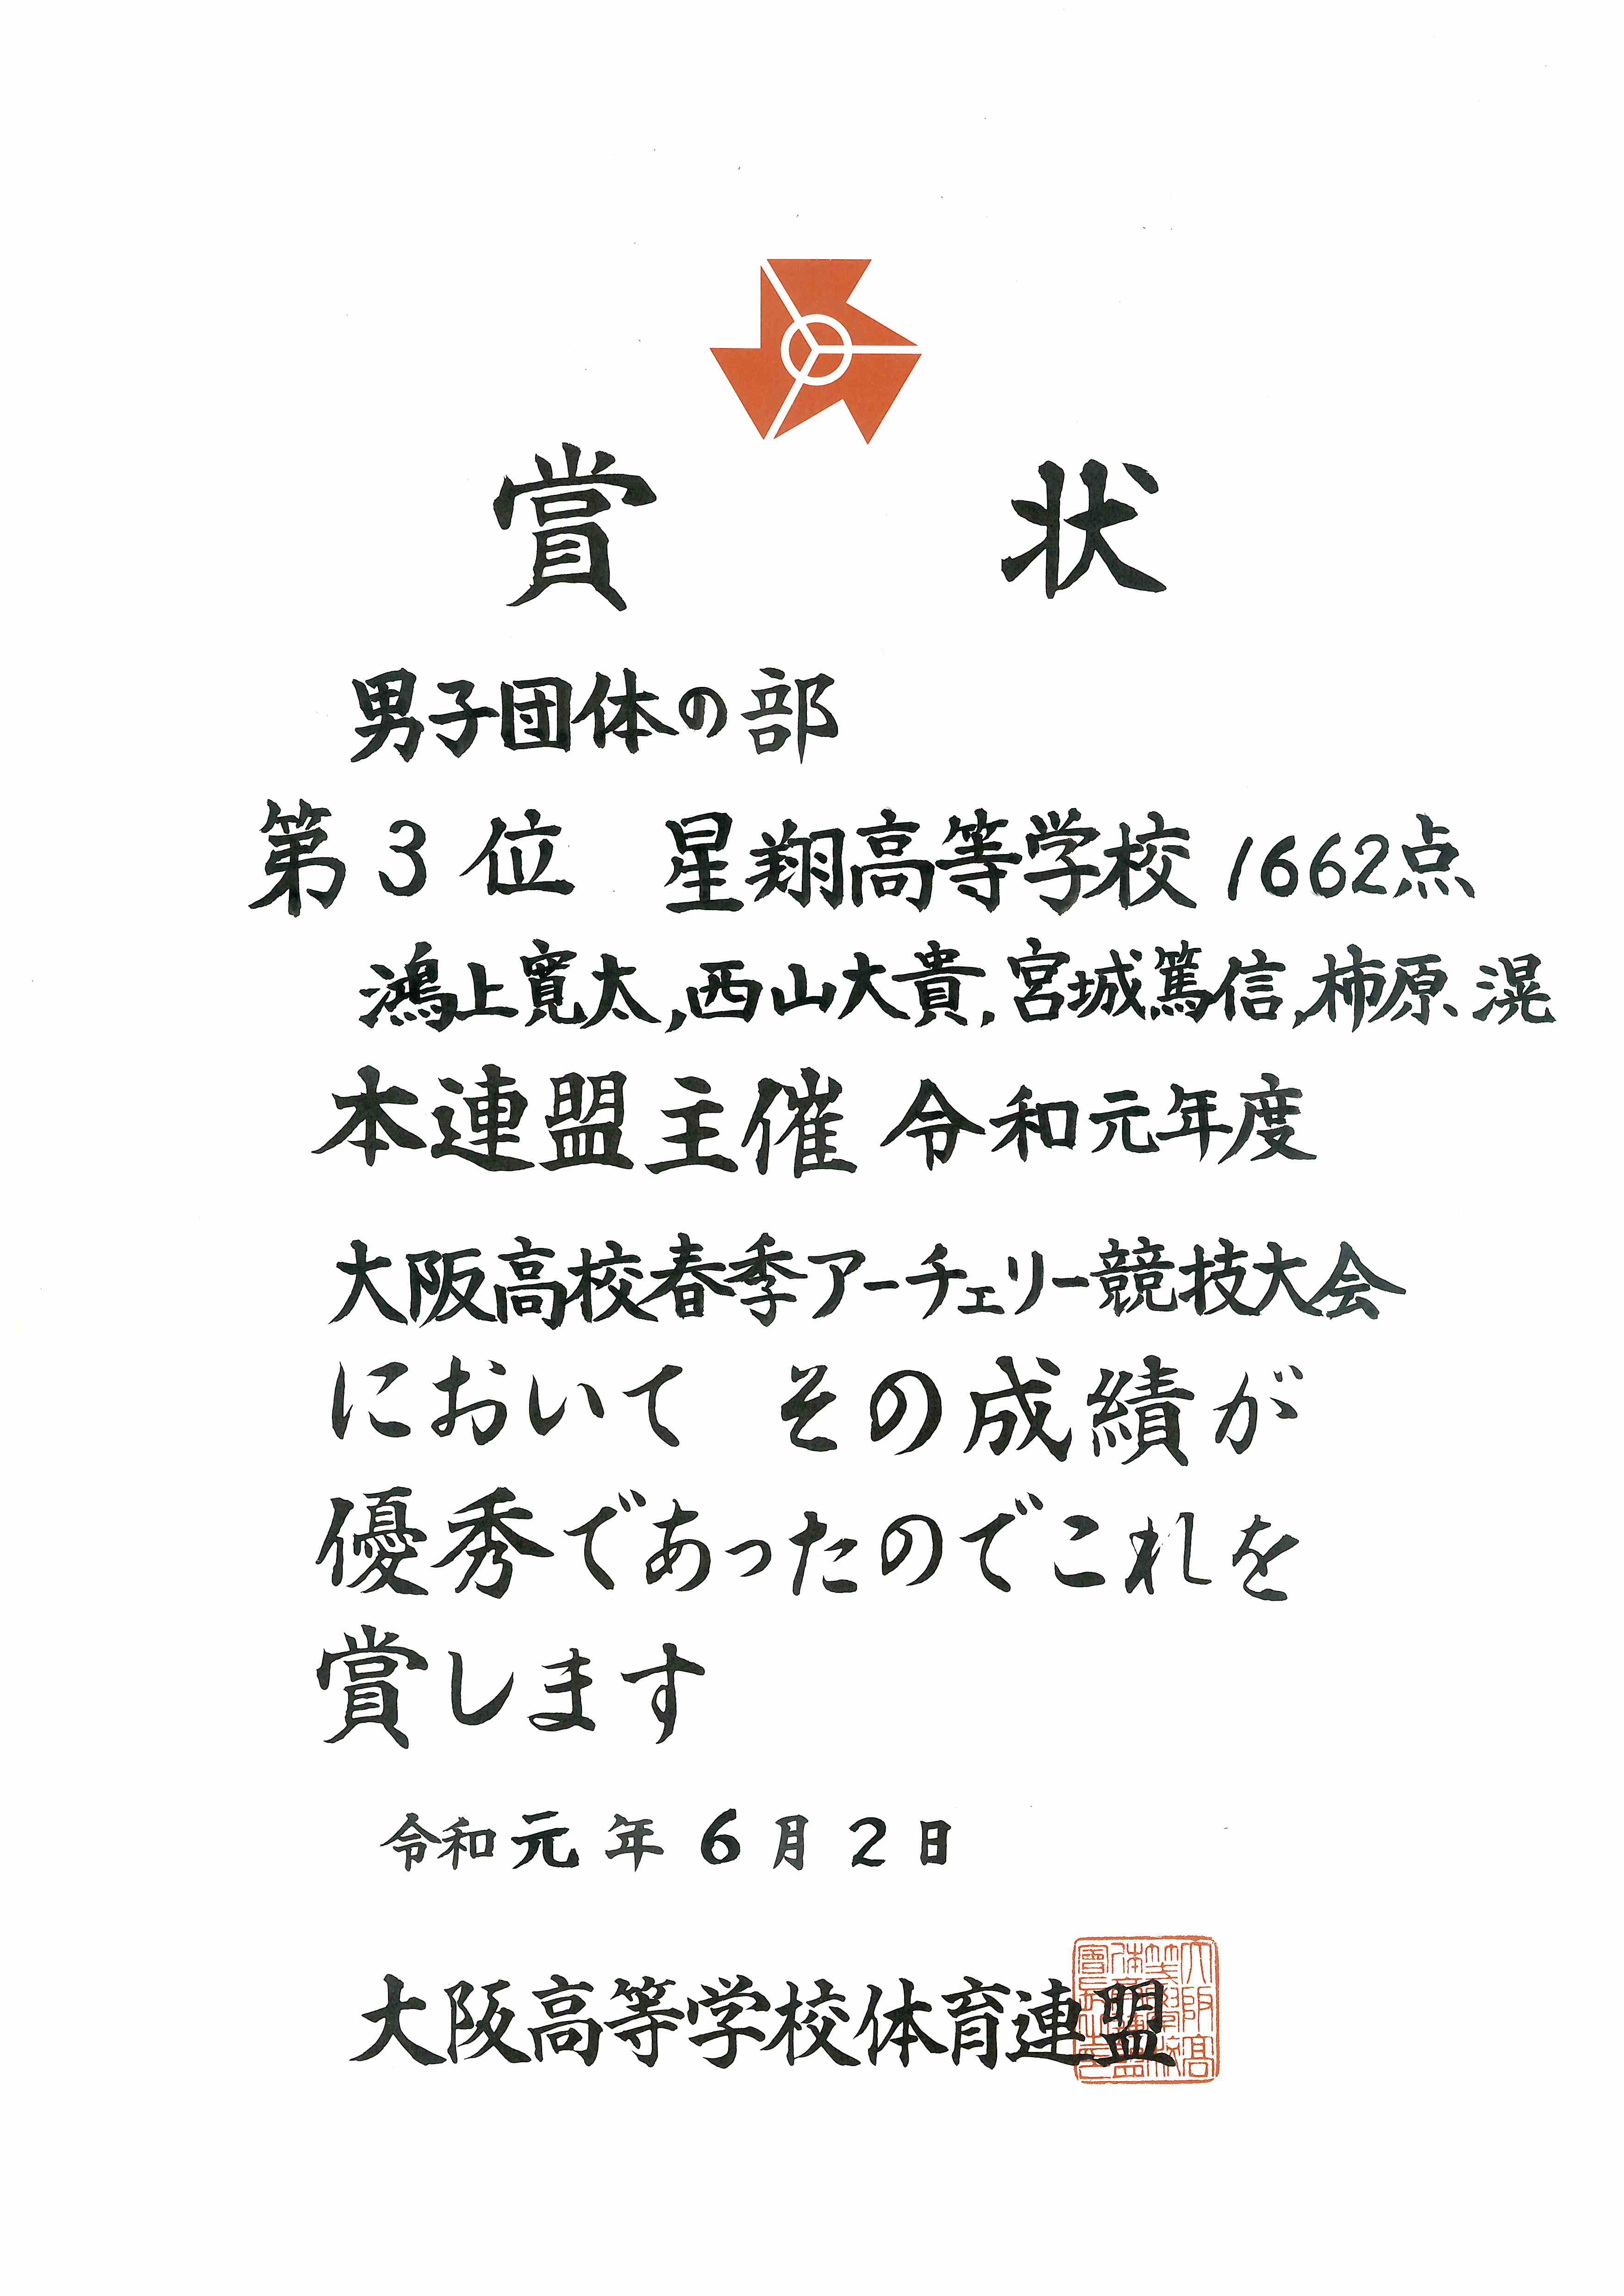 賞 状
男子団体の部
第3位 星翔高等学校 1662点
鴻上寛太,西山大貴,宮城篤信,柿原 滉
本連盟主催 令和元年度
大阪高校春季アーチェリー競技大会
において その成績が
優秀であったのでこれを
賞します
令和元年6月2日
大阪高等学校体育連盟